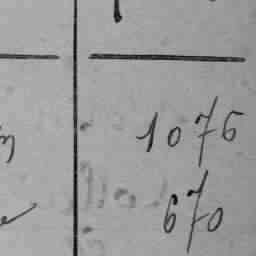 1076
670